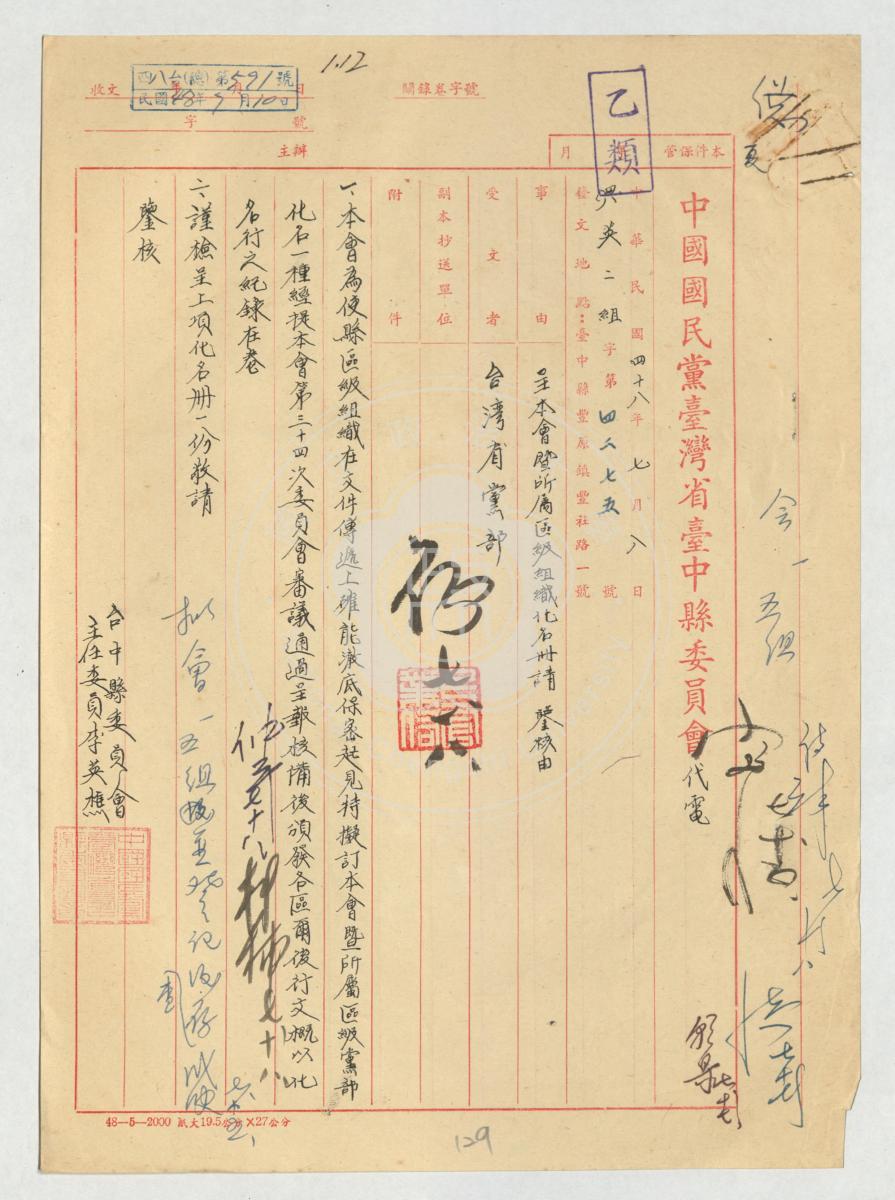 1.12
四八台(總)第591號
民國48年7月10日
收文 字 號
關錄卷字號
主辦
乙類
本件保管 月
中國國民黨臺灣省臺中縣委員會 代電
中華民國四十八年七月八日
興英二組字第四二七五號
發文地點：臺中縣豐原鎮豐社路一號
事由
呈本會暨所屬區級組織化名冊請 鑒核由
受文者
台灣省黨部
副本抄送單位
附件
一、本會為使縣區級組織在文件傳遞上確能澈底保密起見特擬訂本會暨所屬區級黨部
化名一種經提本會第三十四次委員會審議通過呈報核備後頒發各區爾後行文概以化
名行之紀錄在卷
二、謹檢呈上項化名冊一份敬請
鑒核
台中縣委員會
主任委員李英樵
會一五組
擬會一五組
48—5—2000 紙大19.5公分×27公分
129